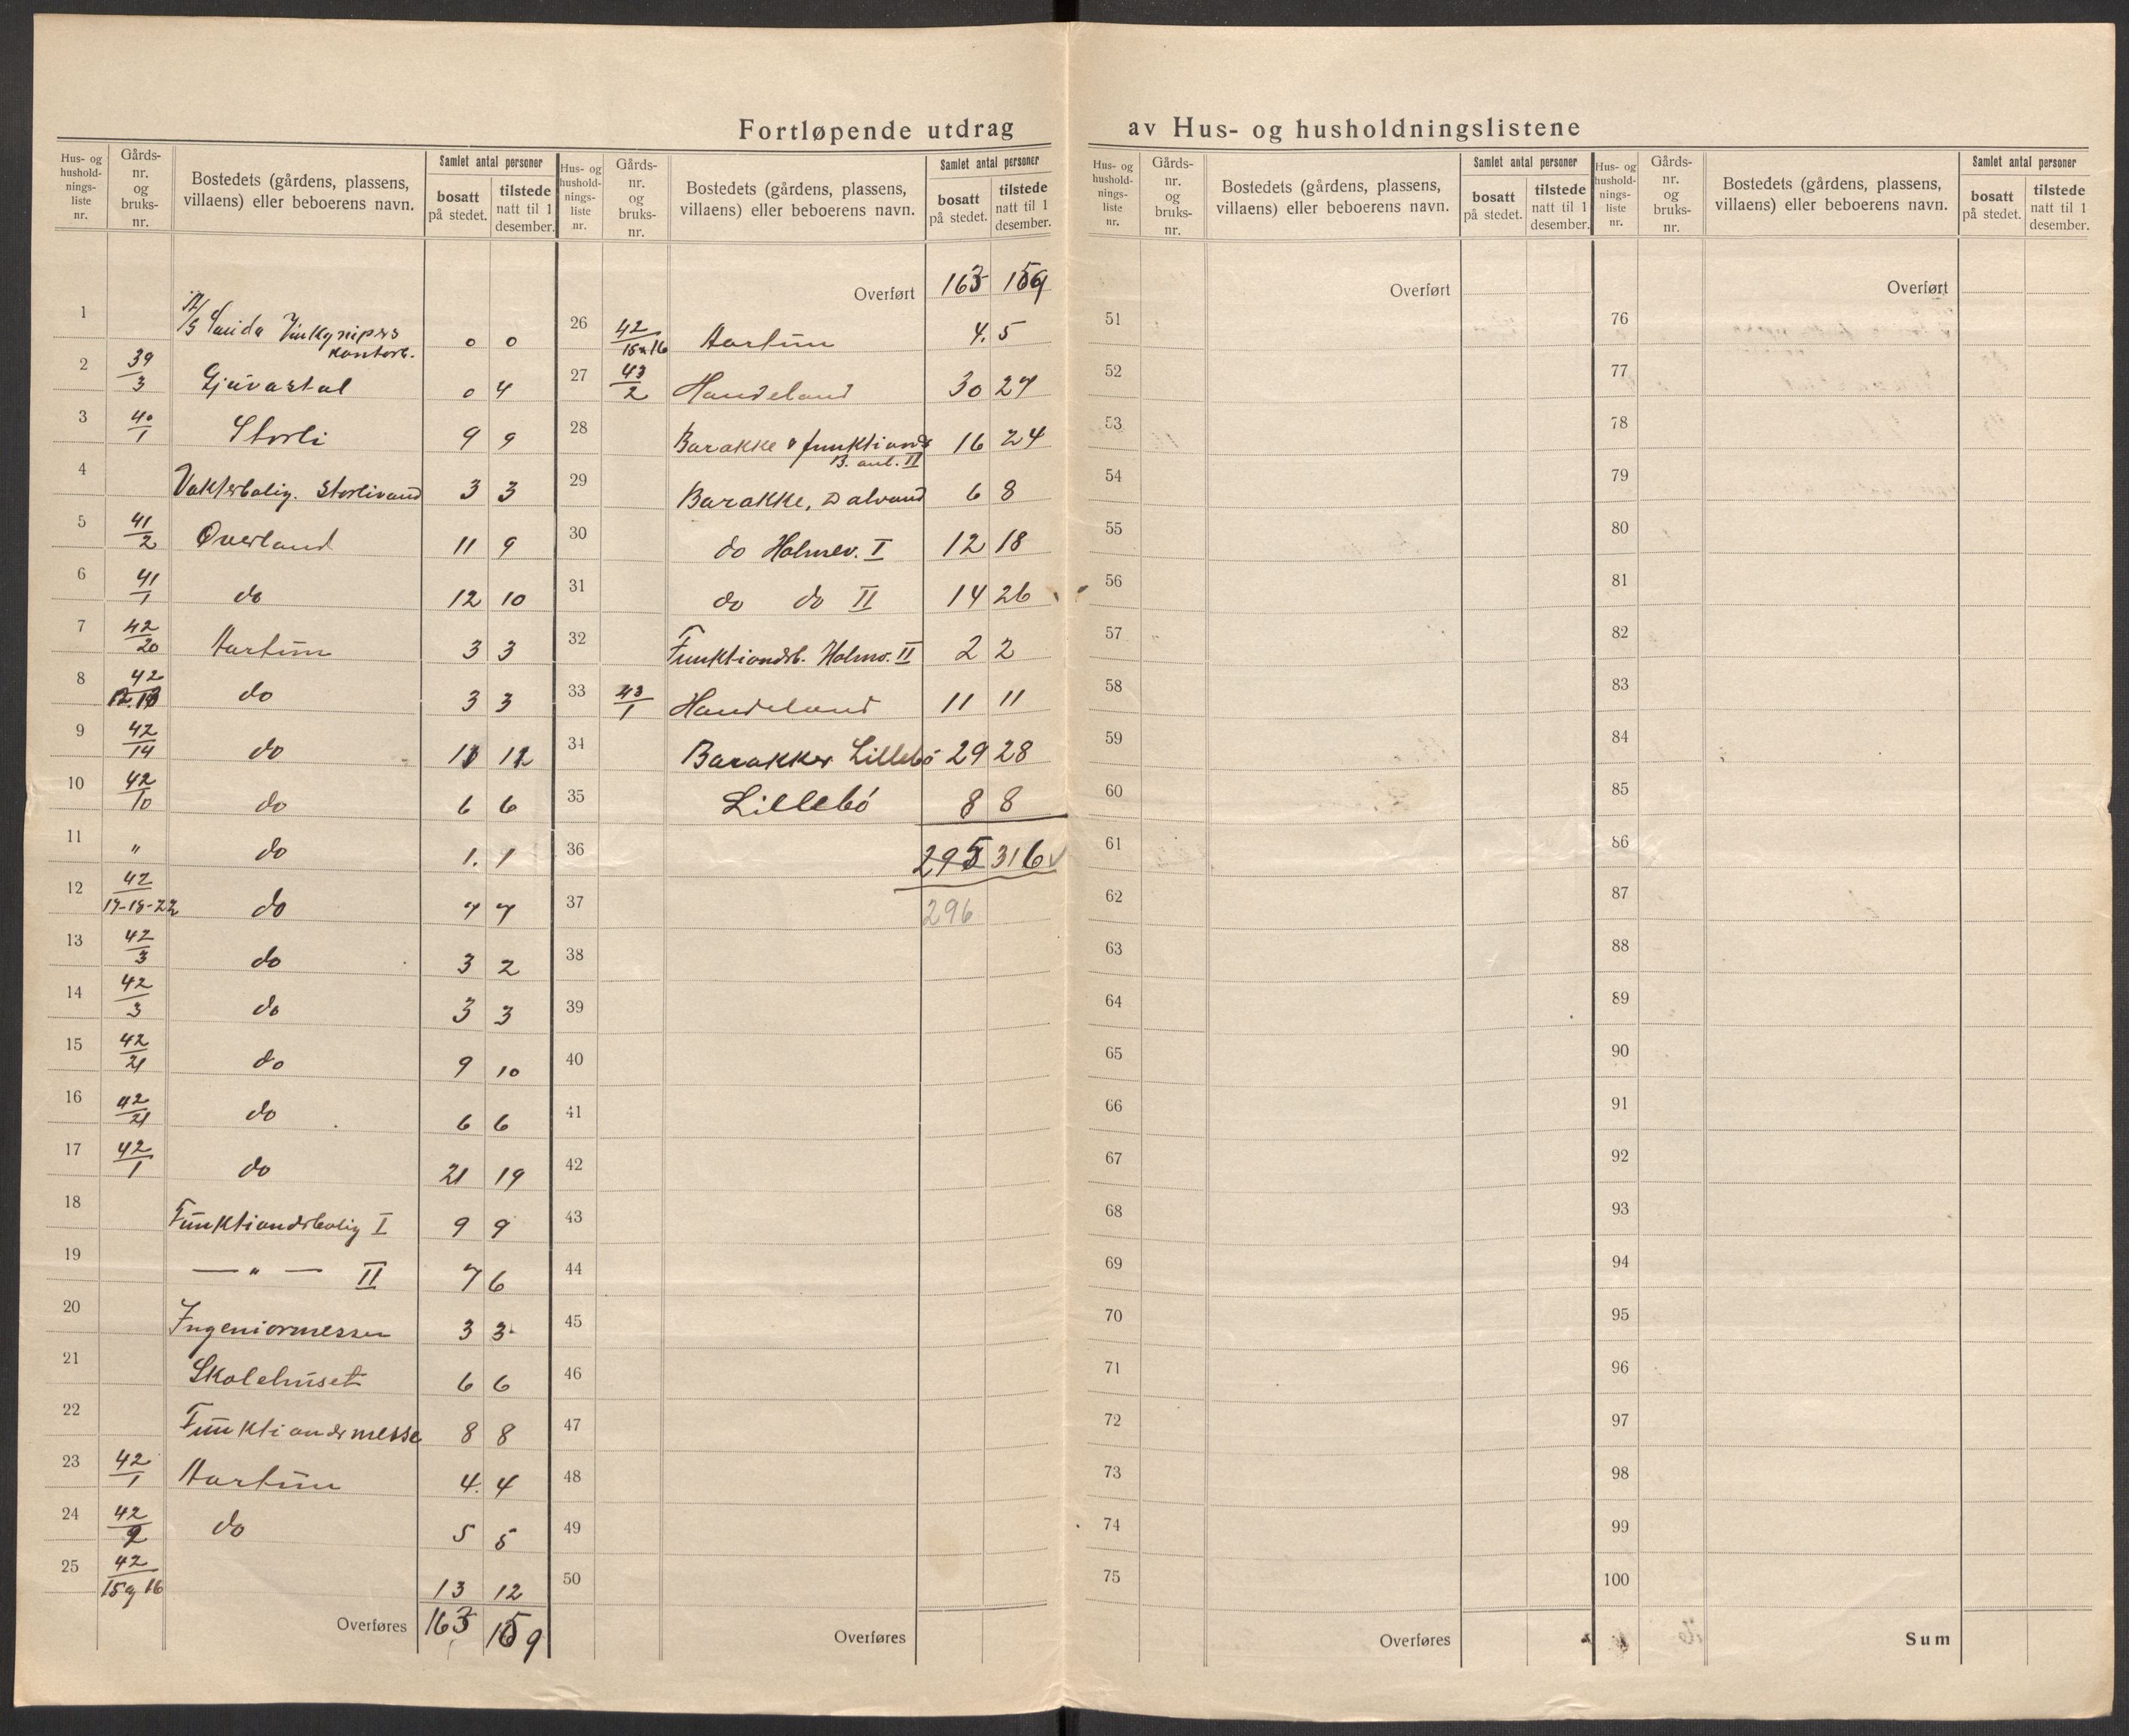 Fortløpende utdrag av Hus- og husholdningslistene
Hus- og hushold-nings-liste nr. Gårds-nr. og bruks-nr. Bostedets (gårdens, plassens, villaens) eller beboerens navn. Samlet antal personer bosatt på stedet. tilstede natt til 1 desember.
1 A/S Sauda kontorb. 0 0
2 39/3 Gjuvastøl 0 4
3 40/1 Storli 9 9
4 Vakterbolig. Storlivand 3 3
5 41/2 Øverland 11 9
6 41/1 do 12 10
7 42/20 Aartun 3 3
8 42/ do 3 3
9 42/14 do 11 12
10 42/10 do 6 6
11 " do 1. 1
12 42/17-18-22 do 7 7
13 42/3 do 3 2
14 42/3 do 3 3
15 42/21 do 9 10
16 42/21 do 6 6
17 42/1 do 21 19
18 Funktiondrbolig I 9 9
19 — " — II 7 6
20 Ingeniormessen 3 3
21 Skolehuset 6 6
22 Funktiondrmesse 8 8
23 42/1 Aartun 4. 4
24 42/2 do 5 5
25 42/15 og 16 13 12
Overføres 163 159
Hus- og hushold-nings-liste nr. Gårds-nr. og bruks-nr. Bostedets (gårdens, plassens, villaens) eller beboerens navn. Samlet antal personer bosatt på stedet. tilstede natt til 1 desember.
Overført 163 159
26 42/15 16 Aartun 4. 5
27 43/2 Handeland 30 27
28 Barakke funktiondr 16 24
B. anl. II
29 Barakke, Dalvand 6 8
30 do Holmev. I 12 18
31 do do II 14 26
32 Funktiondrb. Holmv. II 2 2
33 43/1 Handeland 11 11
34 Barakker Lillebö 29 28
35 Lillebö 8 8
36 295 316 √
37 296
38
39
40
41
42
43
44
45
46
47
48
49
50
Overføres
Hus- og hushold-nings-liste nr. Gårds-nr. og bruks-nr. Bostedets (gårdens, plassens, villaens) eller beboerens navn. Samlet antal personer bosatt på stedet. tilstede natt til 1 desember.
Overført
51
52
53
54
55
56
57
58
59
60
61
62
63
64
65
66
67
68
69
70
71
72
73
74
75
Overføres
Hus- og hushold-nings-liste nr. Gårds-nr. og bruks-nr. Bostedets (gårdens, plassens, villaens) eller beboerens navn. Samlet antal personer bosatt på stedet. tilstede natt til 1 desember.
Overført
76
77
78
79
80
81
82
83
84
85
86
87
88
89
90
91
92
93
94
95
96
97
98
99
100
Sum